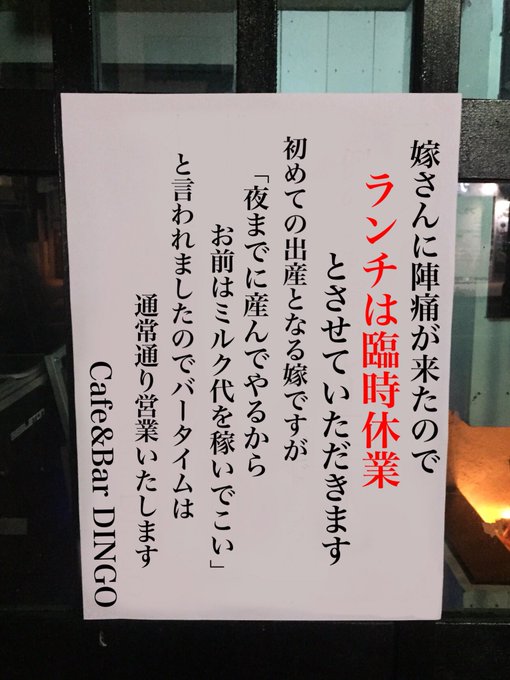 嫁さんに陣痛が来たので
ランチは臨時休業
とさせていただきます
初めての出産となる嫁ですが
「夜までに産んでやるから
お前はミルク代を稼いでこい」
と言われましたのでバータイムは
通常通り営業いたします
Cafe&Bar DINGO